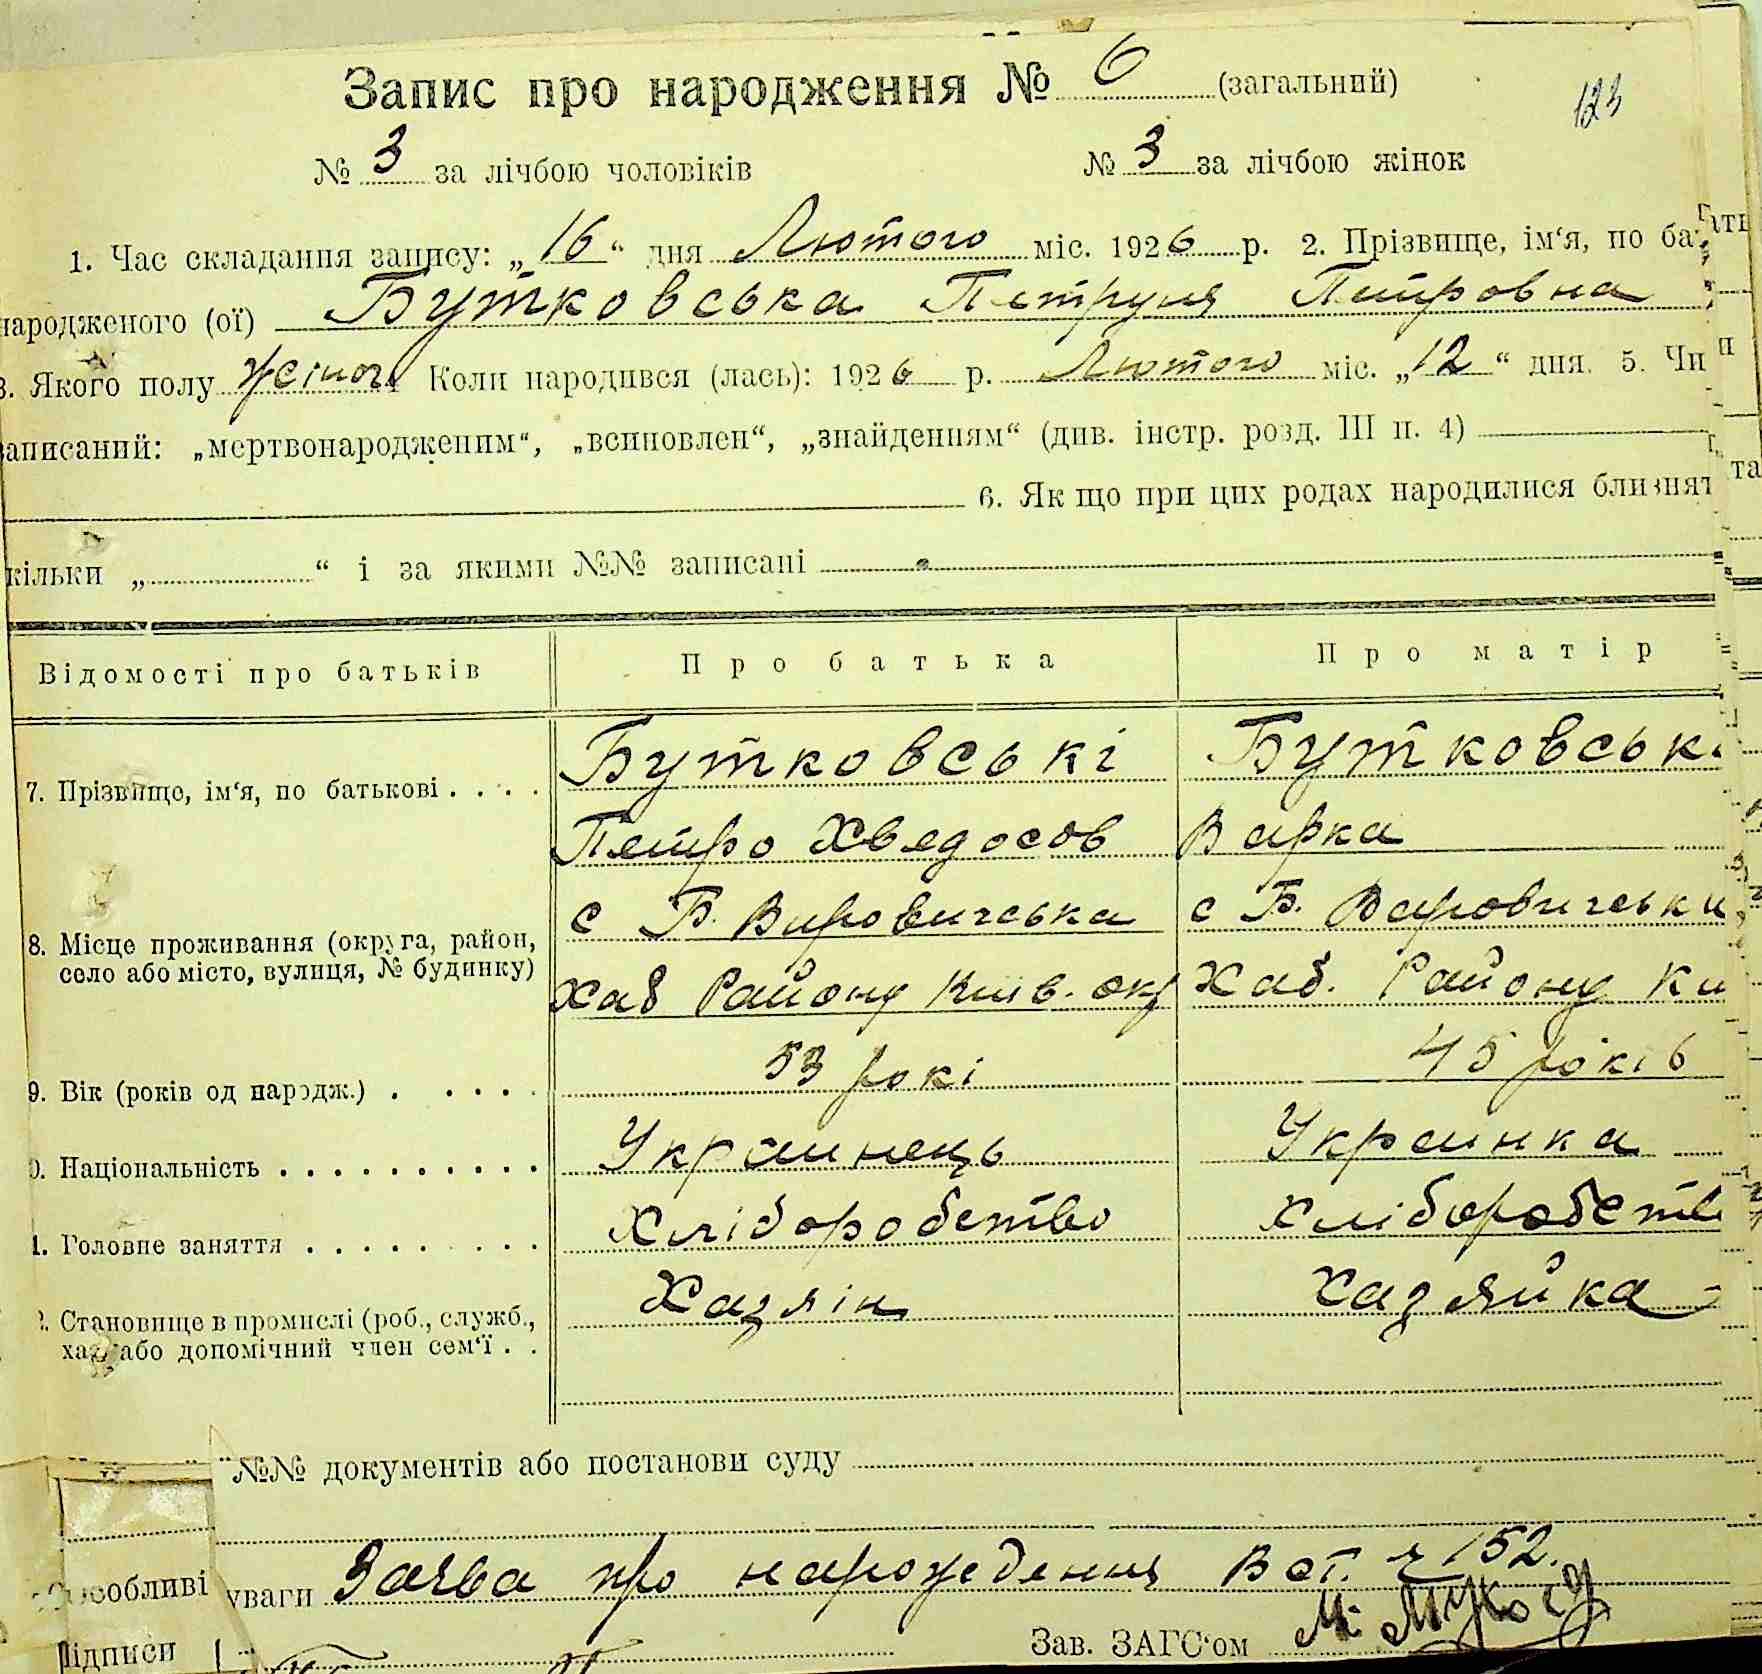 Запис про народження № 6 (загальний)
123
№ 3 за лічбою чоловіків № 3 за лічбою жінок
1. Час складання запису: „16“ дня Лютого міс. 1926 р. 2. Прізвище, ім‘я, по ба
народженого (ої) Бутковська Петруня Петровна
3. Якого полу жіноч Коли народився (лась): 1926 р. Лютого міс. „12“ дня. 5. Чи
записаний: „мертвонародженим“, „всиновлен“, „знайденням“ (див. інстр. розд. III п. 4)
6. Як що при цих родах народилися близнят
кільки „ “ і за якими №№ записані
Відомості про батьків Про батька Про матір
7. Прізвище, ім‘я, по батькові Бутковські Бутковськ
Петро Хведосов Варка
8. Місце проживання (округа, район, село або місто, вулиця, № будинку) с Б. Вировичська с Б. Варовичськи
Хаб Району Київ. окр Хаб. Району Ки
9. Вік (років од народж.) 53 рокі 45 років
0. Національність Украинець Украинка
1. Головне заняття Хліборобство Хліборобств
2. Становище в промислі (роб., служб., хаз. або допомічний член сем‘ї Хазяін Хазяйка
№№ документів або постанови суду
Особливі уваги Заява про народження в ст. 152.
Підписи Зав. ЗАГС‘ом М.